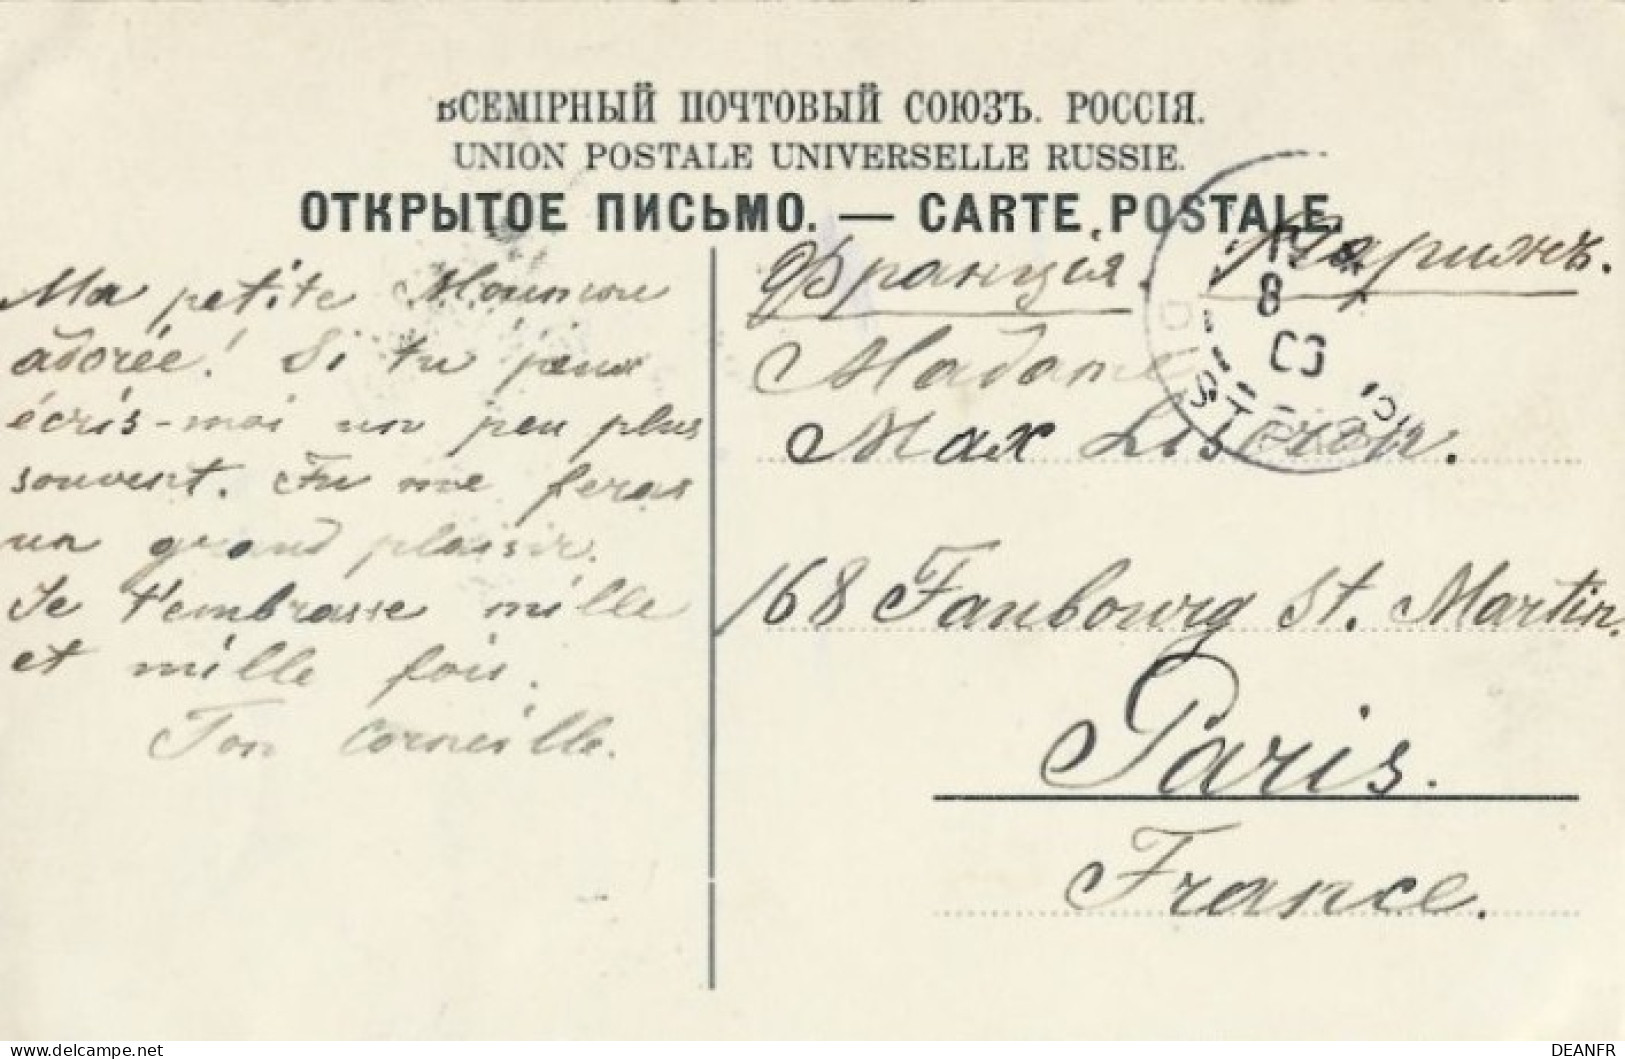 ВСЕМІРНЫЙ ПОЧТОВЫЙ СОЮЗЪ. РОССІЯ.
UNION POSTALE UNIVERSELLE RUSSIE.
ОТКРЫТОЕ ПИСЬМО. — CARTE POSTALE.
Ma petite
adorée! Si tu peux
écris-moi un peu plus
souvent. Tu me feras
un grand plaisir.
Je t'embrasse mille
et mille fois.
Ton Corneille.
Франція. Парижъ.
Madame
Max
168 Faubourg St. Martin.
Paris.
France.
8
delcampe.net
DEANFR